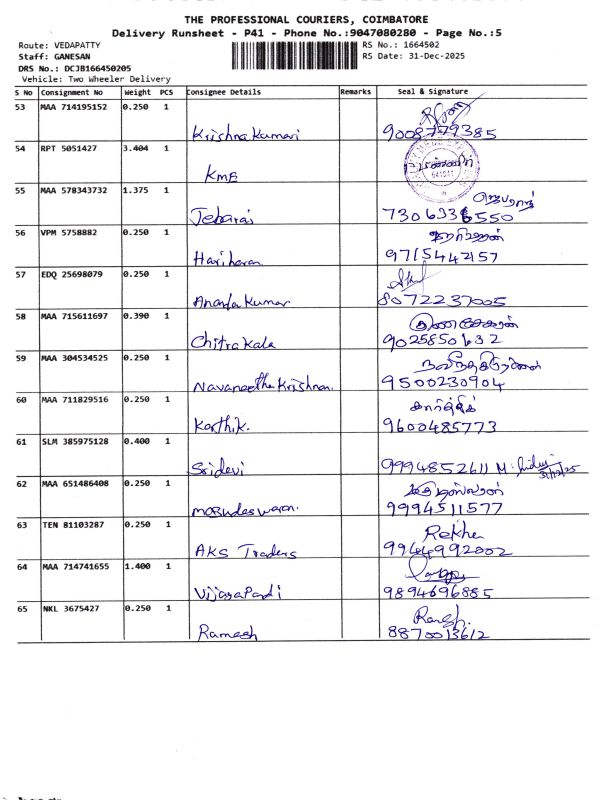 THE PROFESSIONAL COURIERS, COIMBATORE
Delivery Runsheet - P41 - Phone No.:9047080280 - Page No.:5
Route: VEDAPATTY
RS No.: 1664502
Staff: GANESAN
RS Date: 31-Dec-2025
DRS No.: DCJB166450205
Vehicle: Two Wheeler Delivery
S No Consignment No Weight PCS Consignee Details Remarks Seal & Signature
53 MAA 714195152 0.250 1
Krishna Kumari 9008779385
54 RPT 5051427 3.404 1
KME 641041
55 MAA 578343732 1.375 1 ஜெபராஜ்
Jebaraj 7306336550
56 VPM 5758882 0.250 1 ஹரிஹரன்
Hariharan 9715442157
57 EDQ 25698079 0.250 1
Ananda Kumar 8072237005
58 MAA 715611697 0.390 1
Chitra Kala 9025850632
59 MAA 304534525 0.250 1
Navaneetha Krishnan. 9500230904
60 MAA 711829516 0.250 1 கார்த்திக்
Karthik. 9600485773
61 SLM 385975128 0.400 1
Sridevi 9994852611 M. 31/12/25
62 MAA 651486408 0.250 1
9994511577
63 TEN 81103287 0.250 1 Rekha
AKS Traders 9944992002
64 MAA 714741655 1.400 1
Vijaya Pandi 9894696885
65 NKL 3675427 0.250 1
Ramesh 8870013612